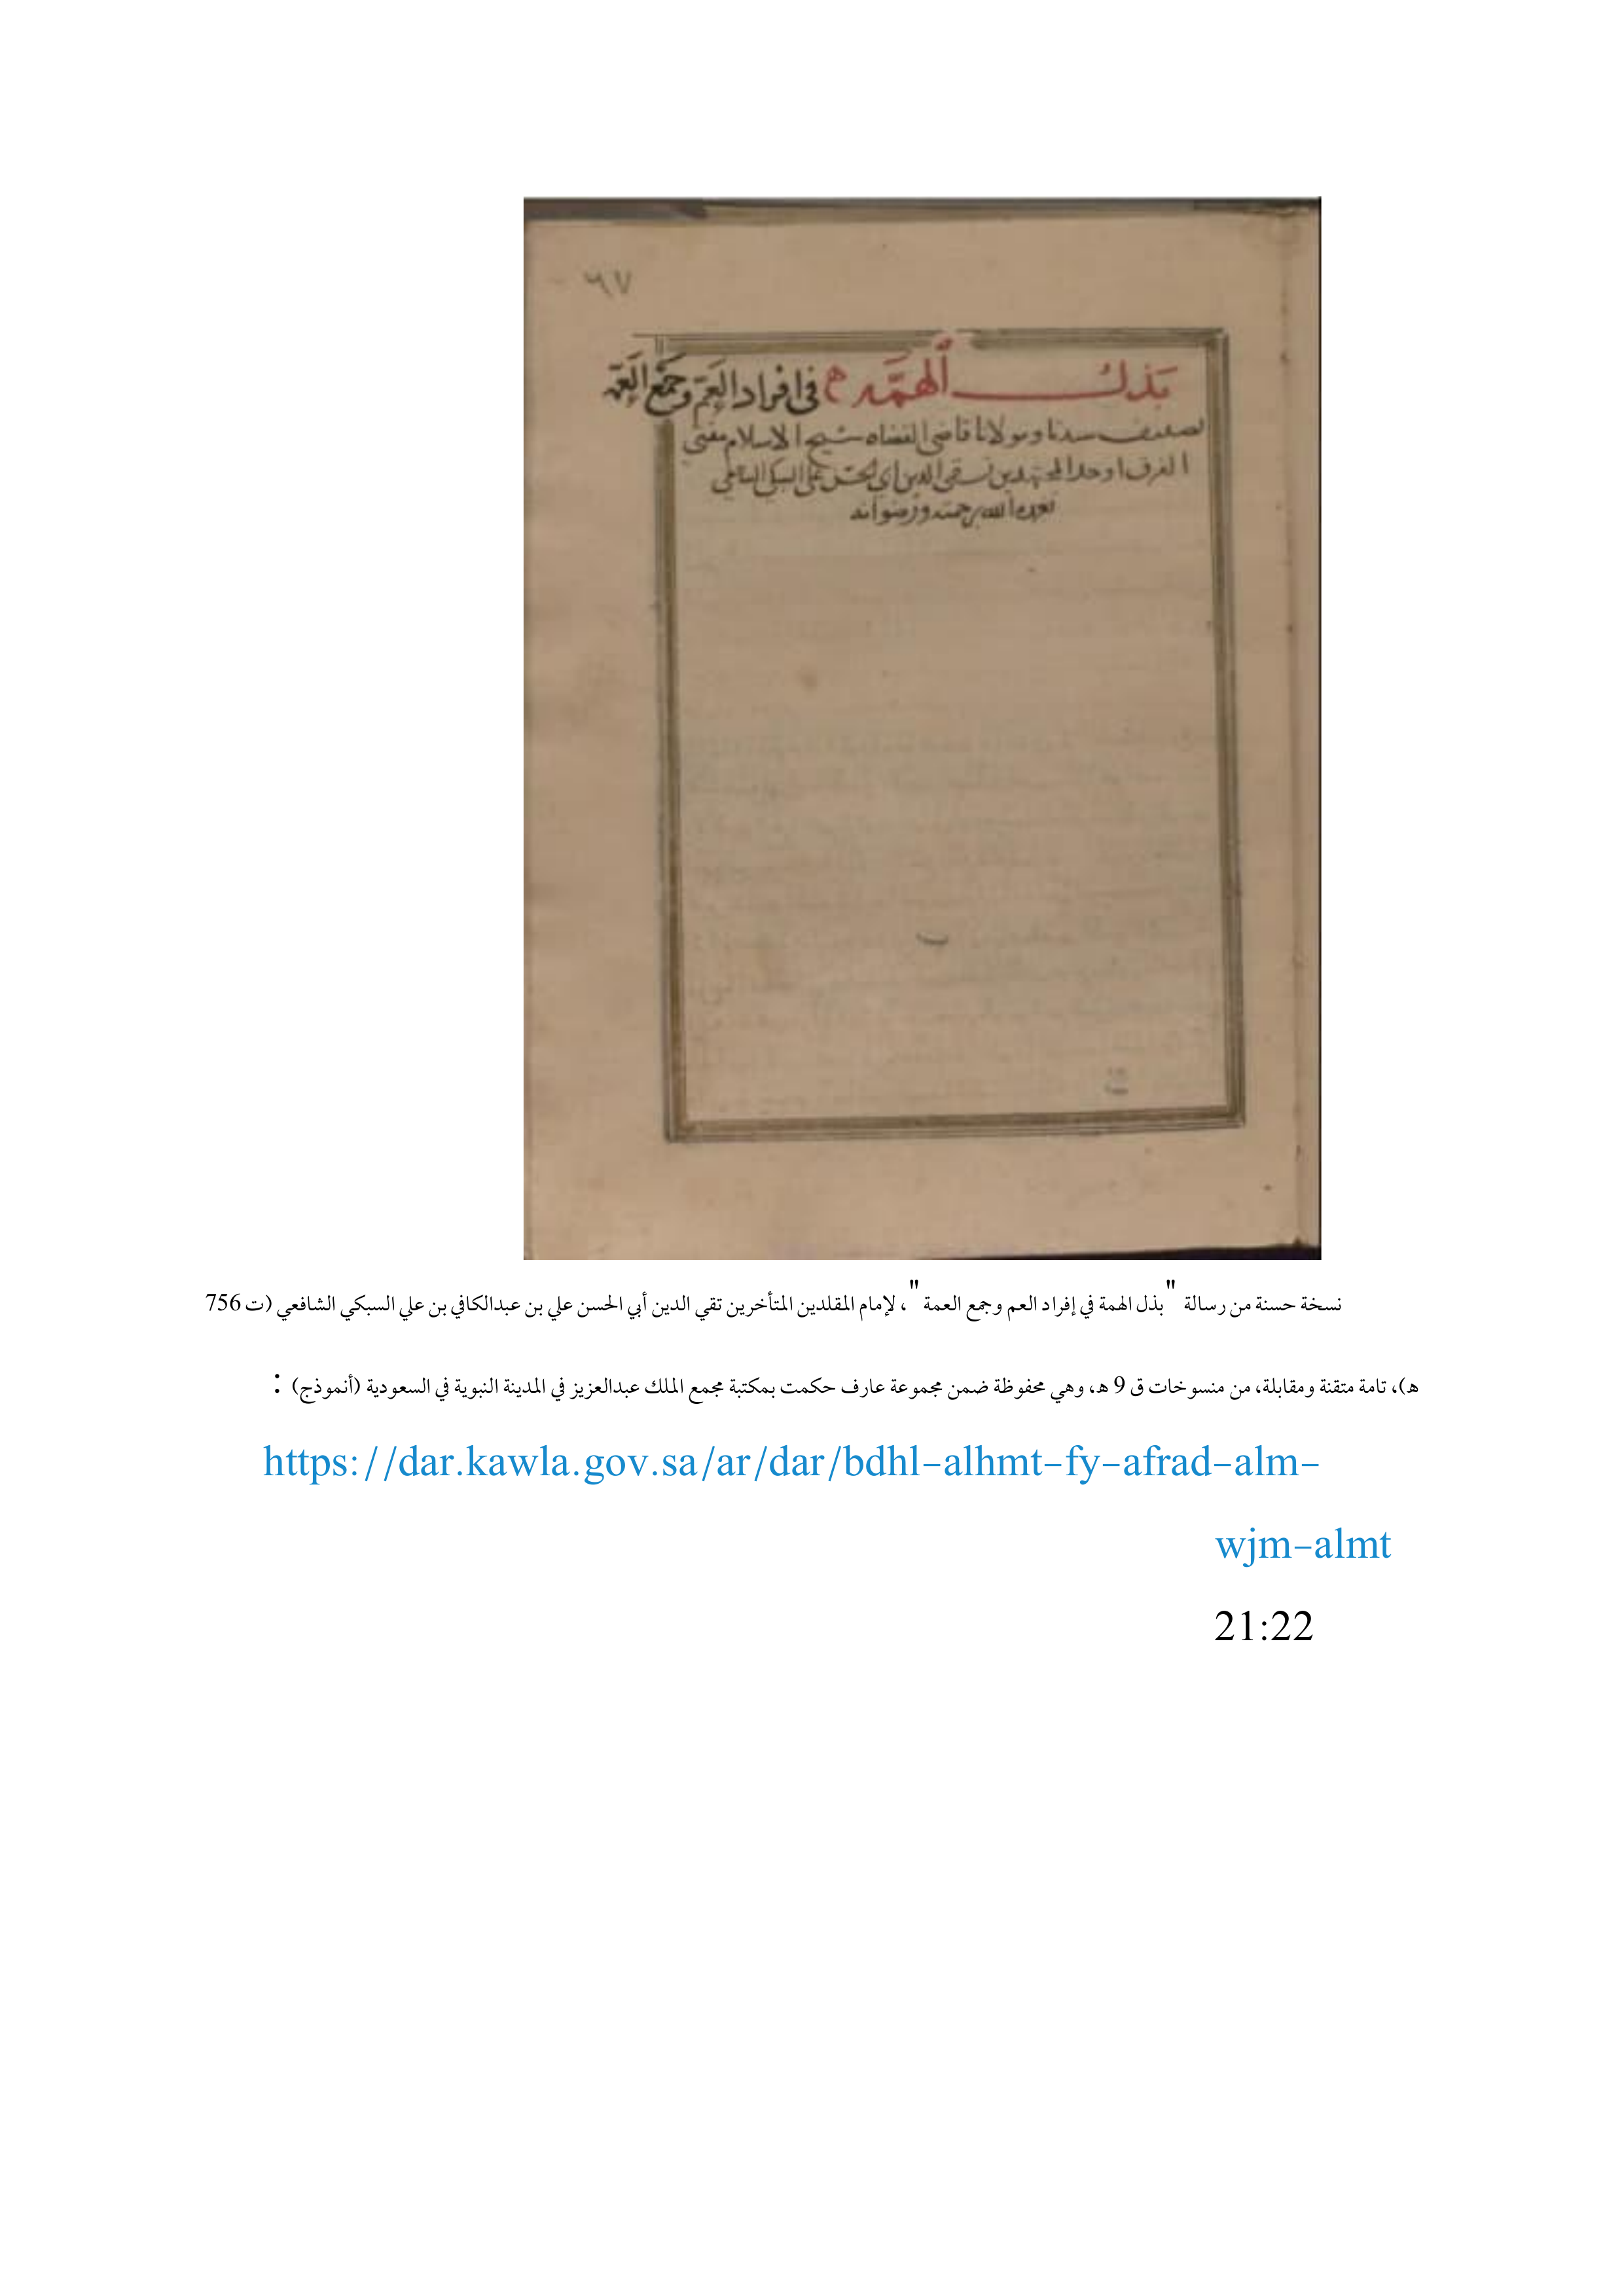 ٦٧
بَذل الهمَّه في افراد العَم وجَمع العَمّه
تصنيف سيدنا ومولانا قاضي القضاه شيخ الاسلام مفتي
الفرق اوحد المجتهدين تقي الدين ابي الحسن علي السبكي الشافعي
تغمده الله برحمته ورضوانه
نسخة حسنة من رسالة "بذل الهمة في إفراد العم وجمع العمة"، لإمام المقلدين المتأخرين تقي الدين أبي الحسن علي بن عبدالكافي بن علي السبكي الشافعي (ت 756
هـ)، تامة متقنة ومقابلة، من منسوخات ق 9 هـ، وهي محفوظة ضمن مجموعة عارف حكمت بمكتبة مجمع الملك عبدالعزيز في المدينة النبوية في السعودية (أنموذج) :
https://dar.kawla.gov.sa/ar/dar/bdhl-alhmt-fy-afrad-alm-
wjm-almt
21:22